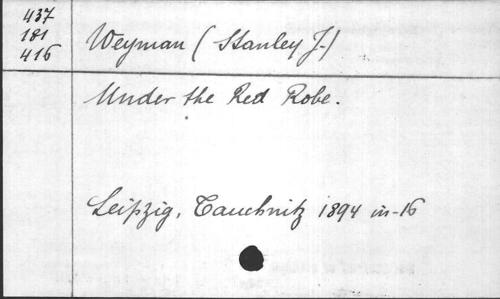 437
181
416
Weyman (Stanley J.)
Under the Red Robe.
Leipzig, Tauchnitz 1894 in-16